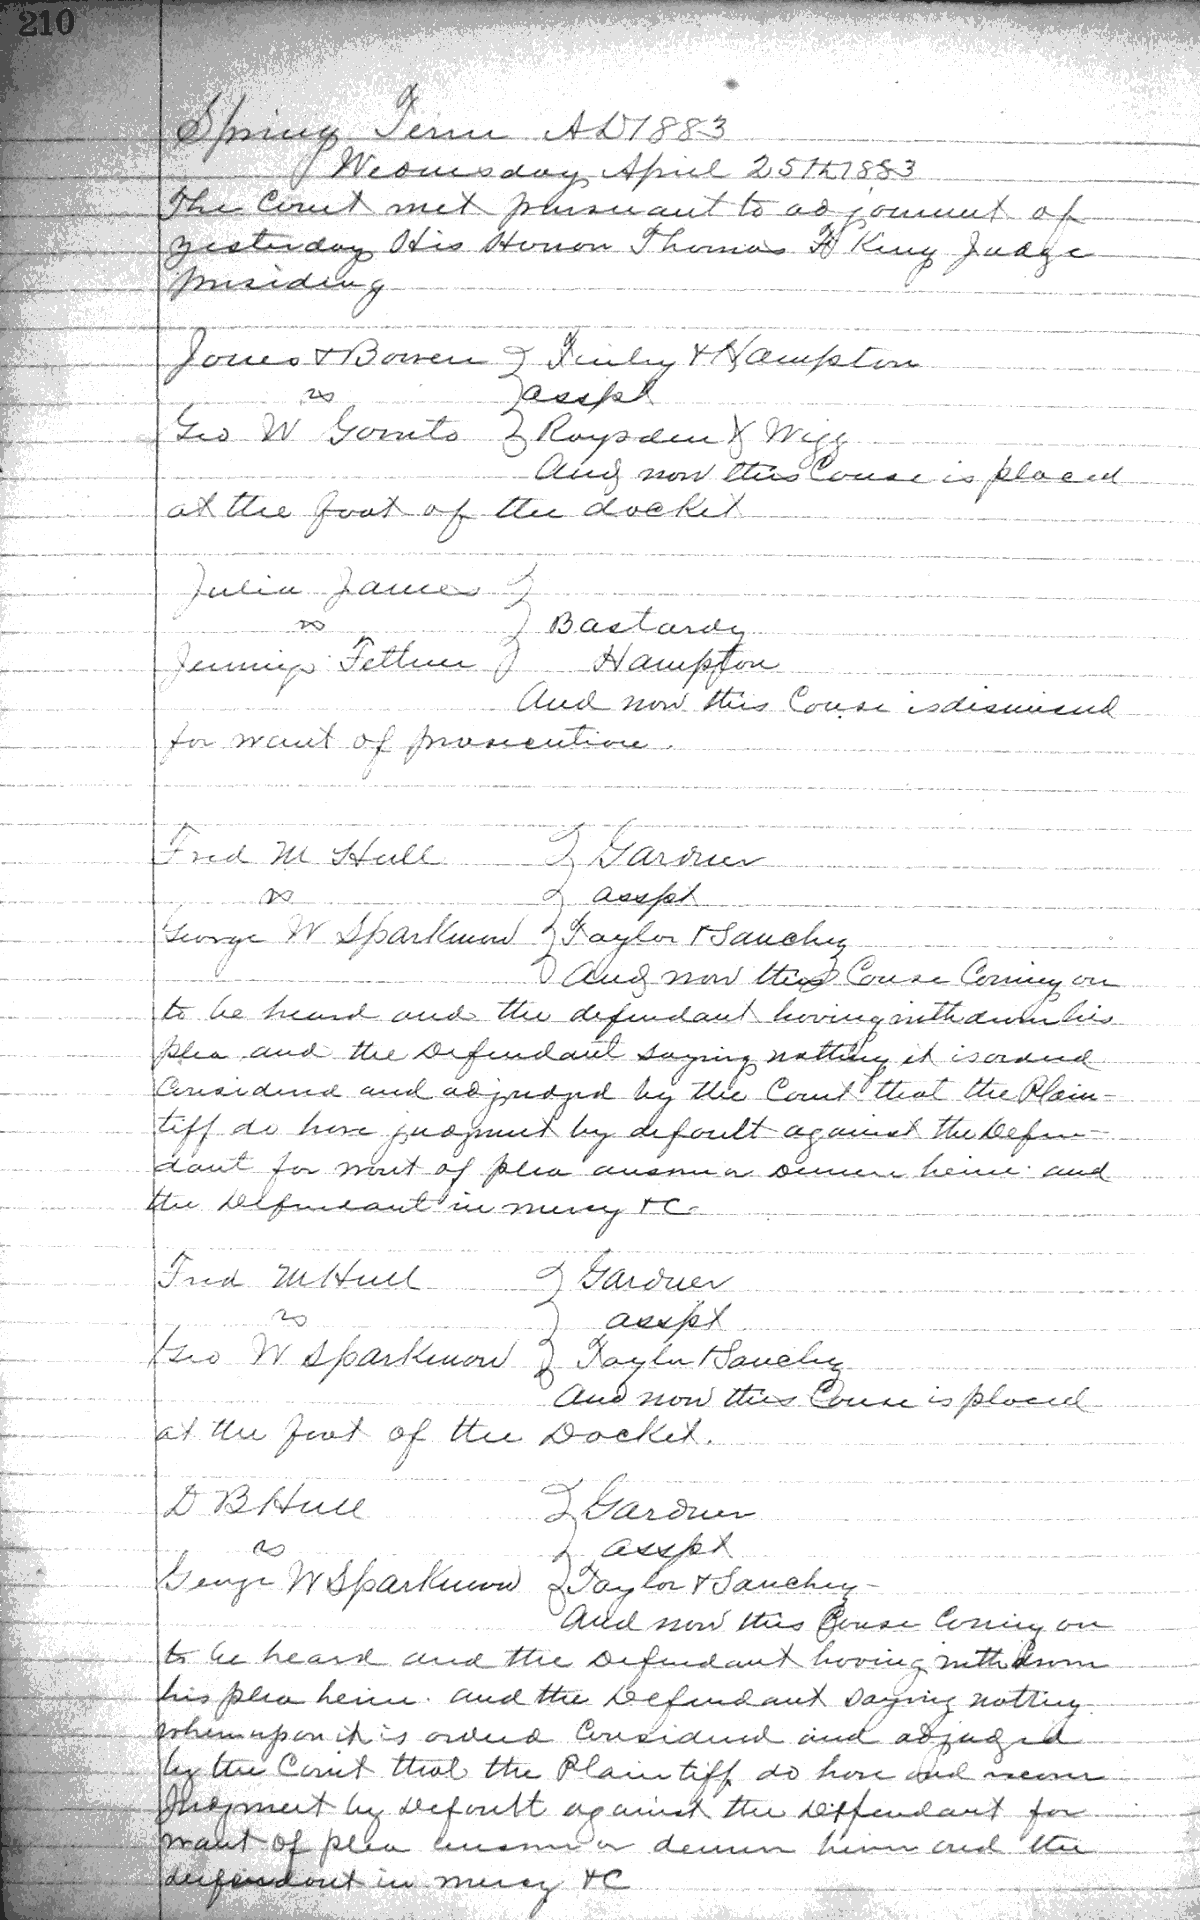 210
Spring Term AD 1883
Wednesday April 25th 1883
The Court met pursuant to adjournment of
yesterday His Honor Thomas F King Judge
presiding
Jones & Bowen } Finley & Hampton
vs } asspt
Geo W Gornto } Roysden & Wigg
And now this Cause is placed
at the foot of the docket
Julia James }
vs } Bastardy
Jennings Fettner } Hampton
And now this Cause is dismissed
for want of prosecution.
Fred M Hull } Gardner
vs } asspt
George W Sparkman } Taylor & Sanchez
And now this Cause Coming on
to be heard and the defendant having withdrawn his
plea and the Defendant saying nothing it is ordered
Considered and adjudged by the Court that the Plain-
tiff do have judgment by default against the Defen-
dant for want of plea answer or demurer herein and
the Defendant in mercy &C.
Fred M Hull } Gardner
vs } asspt
Geo W Sparkman } Taylor & Sanchez
And now this Cause is placed
at the foot of the Docket.
D B Hull } Gardner
vs } asspt
George W Sparkman } Taylor & Sanchez-
And now this Cause Coming on
to be heard and the Defendant having withdrawn
his plea herein and the Defendant saying nothing
whereupon it is ordered Considered and adjudged
by the Court that the Plaintiff do have and recover
Judgment by Default against the Deffendant for
want of plea answer or demurer herein and the
defendant in mercy &C